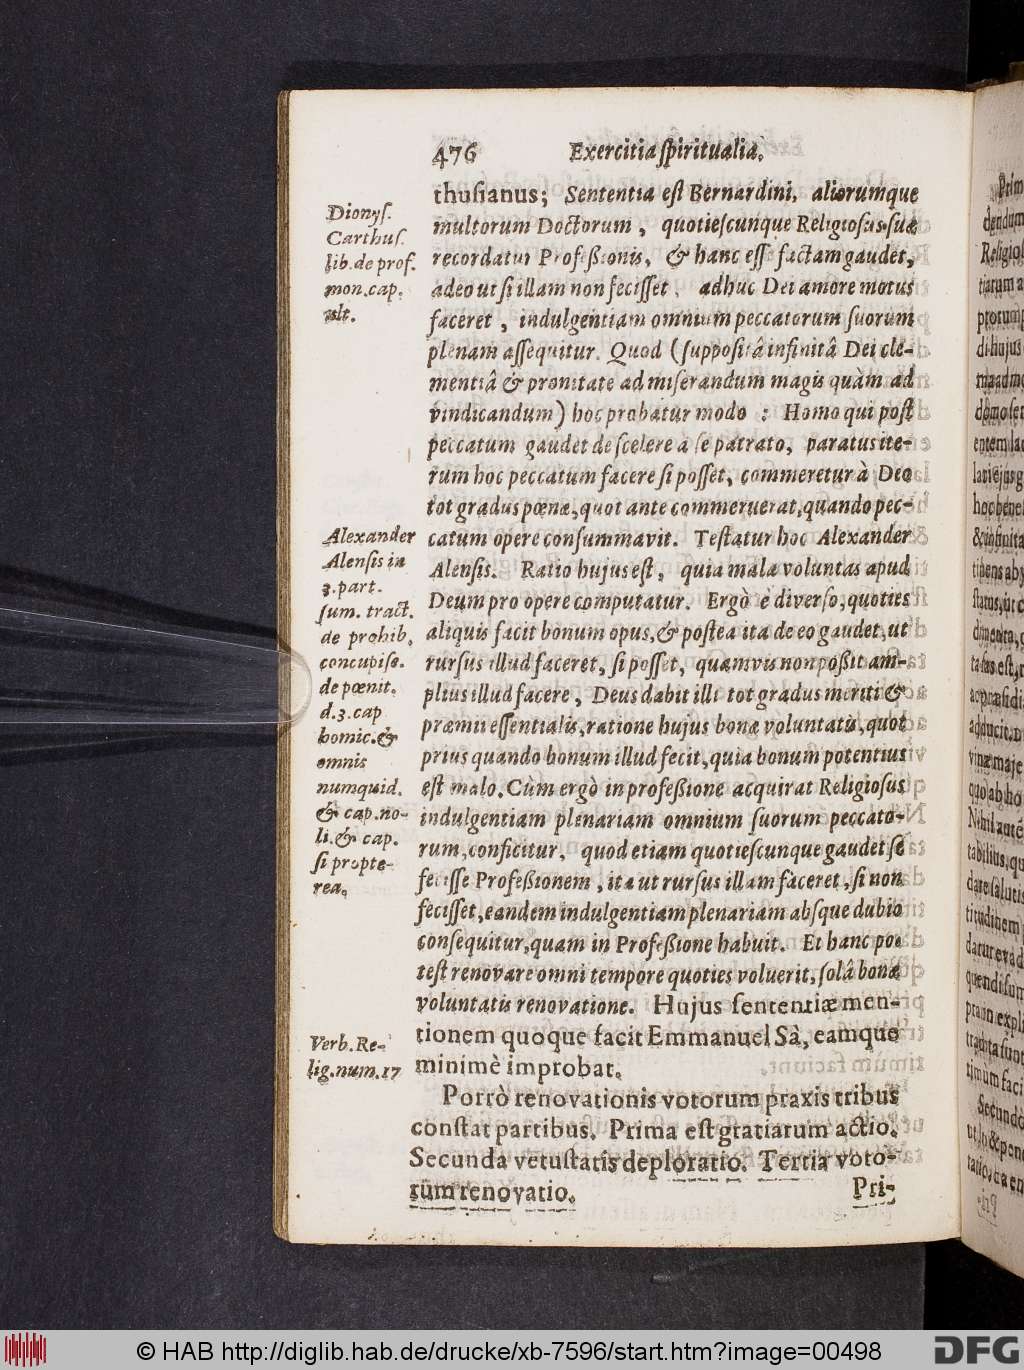 476 Exercitia ſpiritualia.
thuſianus; Sententia eſt Bernardini, aliorumque
multorum Doctorum, quotieſcunque Religioſus ſuæ
recordatur Profeßionis, & hanc eſſe factam gaudet,
adeo ut ſi illam non feciſſet, adhuc Dei amore motus
faceret, indulgentiam omnium peccatorum ſuorum
plenam aſſequitur. Quod (ſuppoſitâ infinitâ Dei cle-
mentiâ & pronitate ad miſerandum magis quàm ad
vindicandum) hoc probatur modo : Homo qui poſt
peccatum gaudet de ſcelere à ſe patrato, paratus ite-
rum hoc peccatum facere ſi poſſet, commeretur à Deo
tot gradus pœnæ, quot ante commeruerat, quando pec-
catum opere conſummavit. Teſtatur hoc Alexander
Alenſis. Ratio hujus eſt, quia mala voluntas apud
Deum pro opere computatur. Ergò è diverſo, quoties
aliquis facit bonum opus, & poſtea ita de eo gaudet, ut
rurſus illud faceret, ſi poſſet, quamvis non poßit am-
plius illud facere, Deus dabit illi tot gradus meriti &
præmii eſſentialis, ratione hujus bonæ voluntatis, quot
prius quando bonum illud fecit, quia bonum potentius
eſt malo. Cùm ergò in profeßione acquirat Religioſus
indulgentiam plenariam omnium ſuorum peccato-
rum, conficitur, quod etiam quotieſcunque gaudet ſe
feciſſe Profeßionem, ita ut rurſus illam faceret, ſi non
feciſſet, eandem indulgentiam plenariam abſque dubio
conſequitur, quam in Profeßione habuit. Et hanc po-
teſt renovare omni tempore quoties voluerit, ſolâ bonæ
voluntatis renovatione. Hujus ſententiæ men-
tionem quoque facit Emmanuel Sà, eamque
minimè improbat.
Porrò renovationis votorum praxis tribus
conſtat partibus. Prima eſt gratiarum actio.
Secunda vetuſtatis deploratio. Tertia voto-
rum renovatio.
Pri-
Dionyſ.
Carthuſ.
lib. de prof.
mon. cap.
ult.
Alexander
Alenſis in
3. part.
ſum. tract.
de prohib.
concupiſc.
de pœnit.
d. 3. cap
homic. &
omnis
numquid.
& cap. no-
li. & cap.
ſi propte-
rea.
Verb. Re-
lig. num. 17
© HAB http://diglib.hab.de/drucke/xb-7596/start.htm?image=00498
DFG